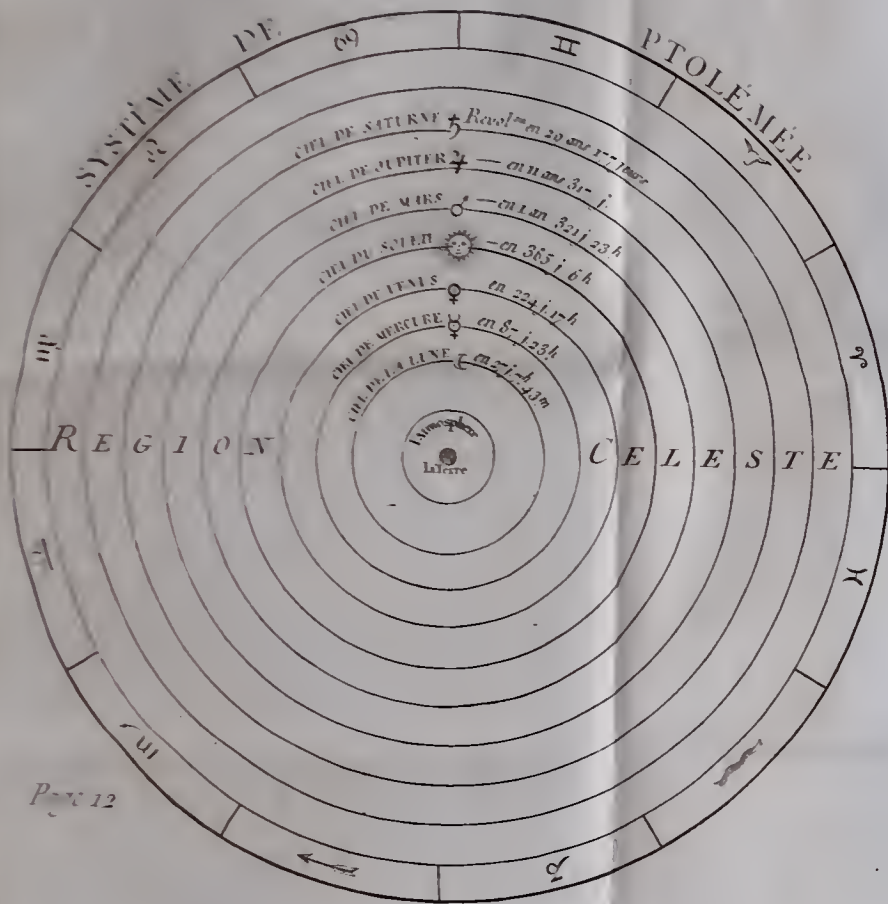 SYSTÈME DE PTOLÉMÉE
CIEL DE SATURNE ♄ Revol.on en 29 ans 177 jours
CIEL DE JUPITER ♃ — en 11 ans 317 j.
CIEL DE MARS ♂ — en 1 an 321 j 23 h
CIEL DU SOLEIL — en 365 j 6 h
CIEL DE VENUS ♀ en 224 j. 17 h
CIEL DE MERCURE ☿ en 87 j. 23 h.
CIEL DE LA LUNE ☾ en 27 j. 7 h 43 m
REGION CELESTE
l'Atmosphere
la Terre
Page 12